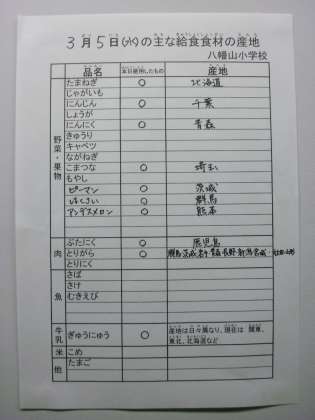 3月5日(火)の主な給食食材の産地
八幡山小学校
品名 本日使用したもの 産地
野菜・果物
たまねぎ ○ 北海道
じゃがいも
にんじん ○ 千葉
しょうが
にんにく ○ 青森
きゅうり
キャベツ
ながねぎ
こまつな ○ 埼玉
もやし
ピーマン ○ 茨城
はくさい ○ 群馬
アンデスメロン ○ 熊本
肉
ぶたにく ○ 鹿児島
とりがら ○ 群馬 茨城 岩手 青森 長野 新潟 宮城
とりにく
魚
さば
さけ
むきえび
牛乳 ぎゅうにゅう ○ 産地は日々異なり、現在は 関東、
東北、北海道など
米 こめ
他 たまご